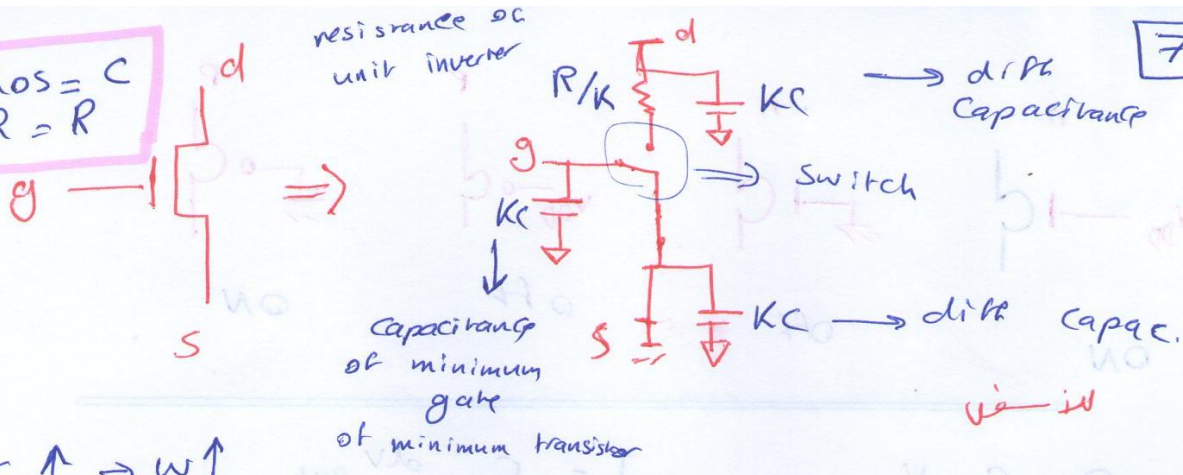 nmos = C
R = R
resistance of
unit inverter
d
g
s
d
R/K
KC
→ diff
Capacitance
7
g
⇒ switch
KC
capacitance
of minimum
gate
of minimum transistor
S
KC → diff capac.
↑ → W↑
ON
off
ON